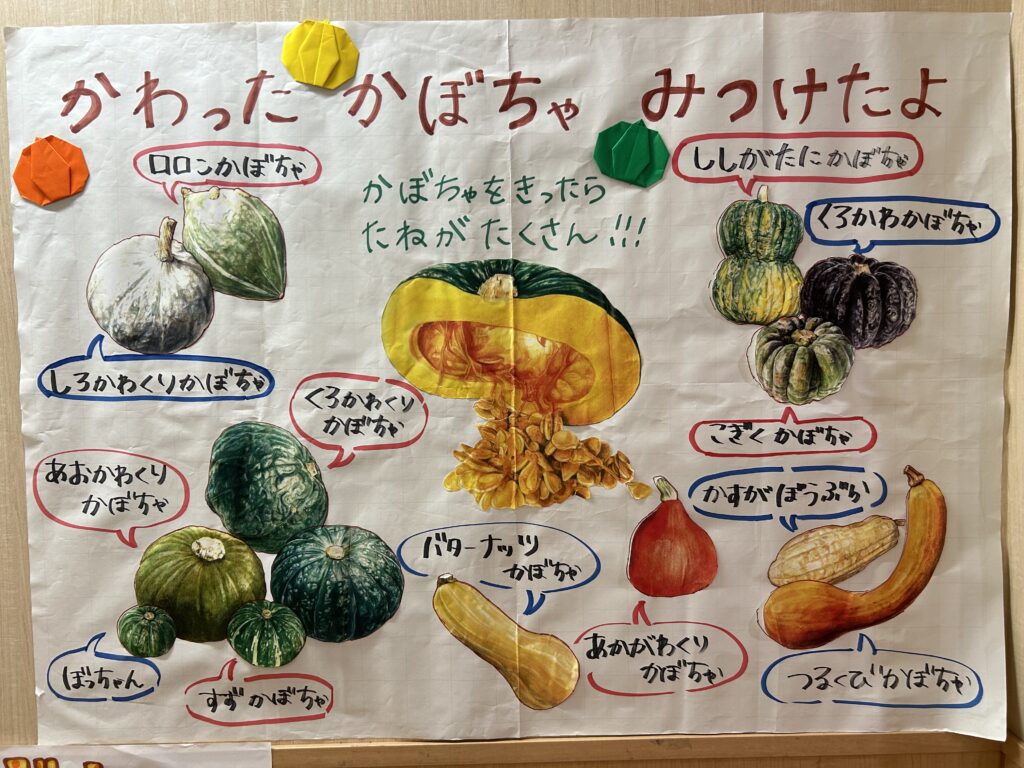 かわった かぼちゃ みつけたよ
ロロンかぼちゃ
ししがたにかぼちゃ
かぼちゃをきったら
たねが たくさん!!!
くろかわかぼちゃ
しろかわくりかぼちゃ
くろかわくり
かぼちゃ
こぎくかぼちゃ
あおかわくり
かぼちゃ
かすがぼうぶら
バターナッツ
かぼちゃ
ぼっちゃん
すずかぼちゃ
あかがわくり
かぼちゃ
つるくびかぼちゃ